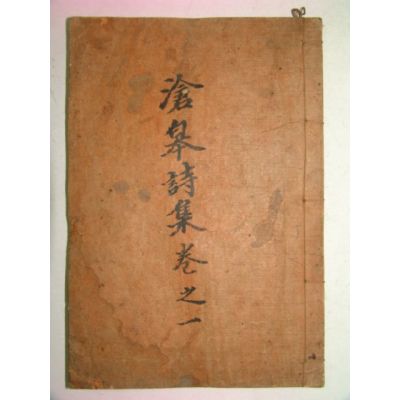 滄皐詩集卷之一